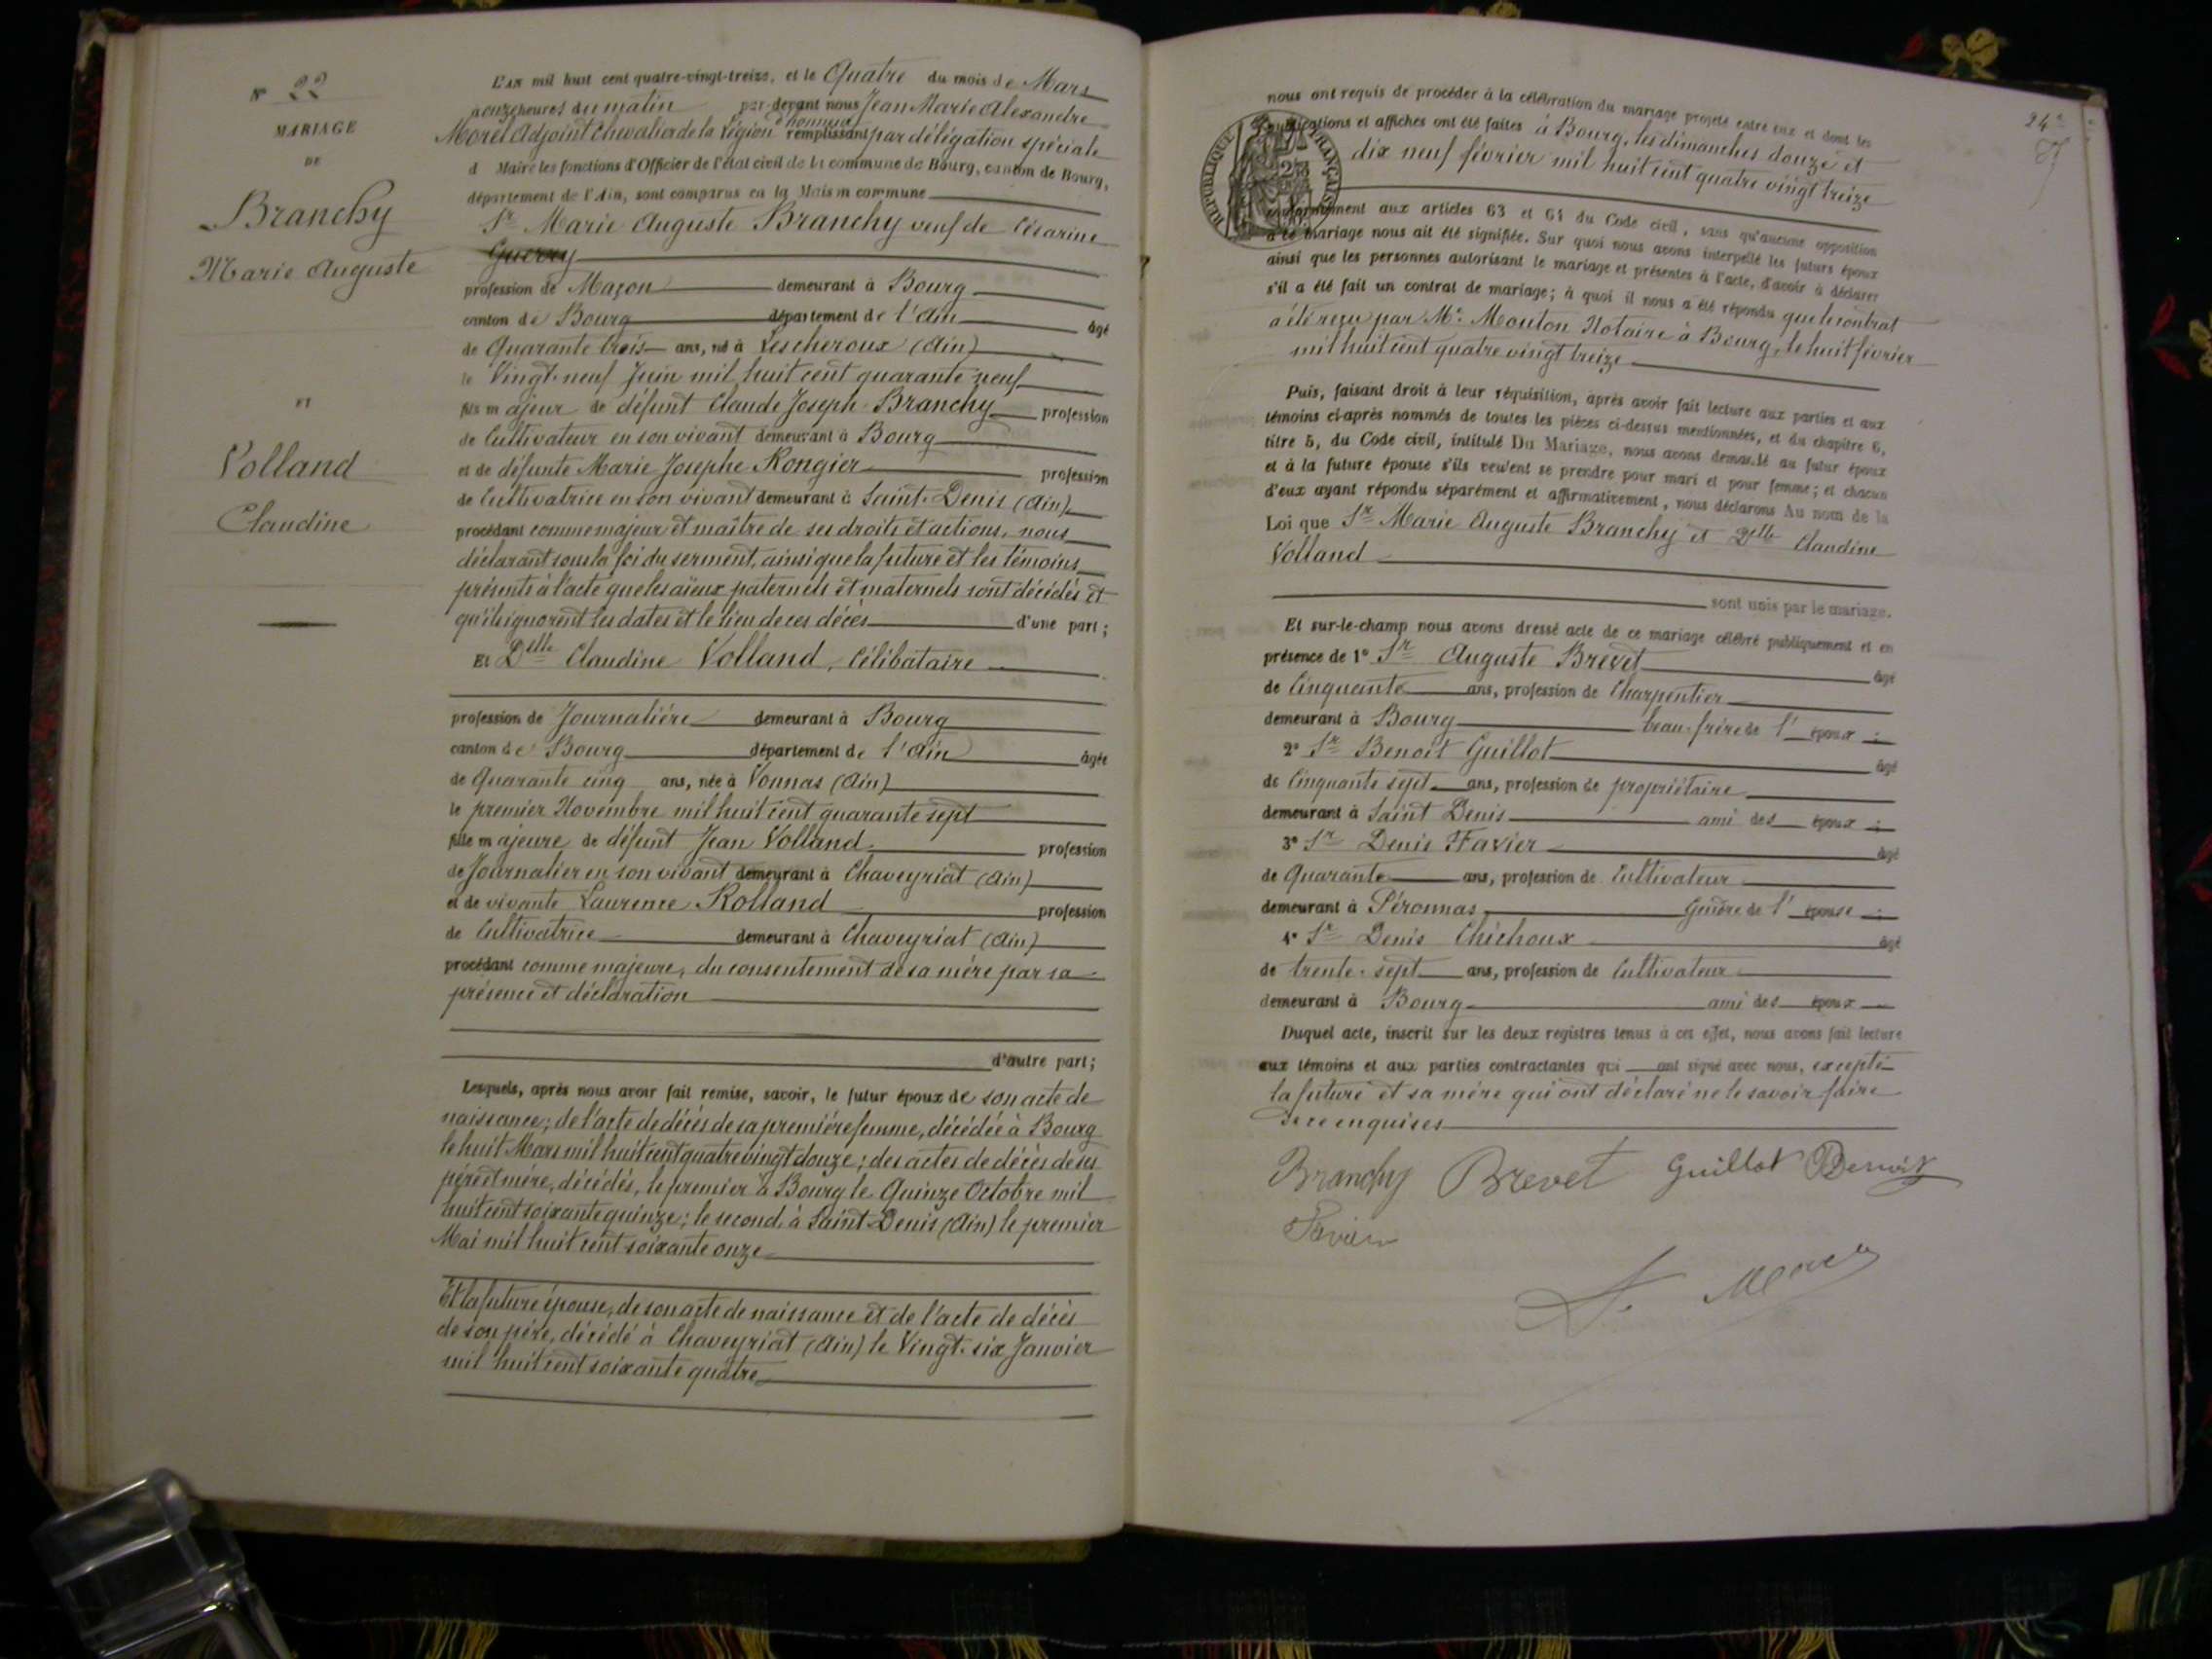 N° 22
MARIAGE
DE
Branchy
Marie Auguste
ET
Volland
Claudine
L'AN mil huit cent quatre-vingt-treize, et le Quatre du mois de Mars
à onze heures du matin par-devant nous Jean Marie Alexandre
Morel Adjoint Chevalier de la Légion d'honneur remplissant par délégation spéciale
d Maire les fonctions d'Officier de l'état civil de la commune de Bourg, canton de Bourg,
département de l'Ain, sont comparus en la Maison commune
Sr Marie Auguste Branchy veuf de Césarine
Guerry
profession de Maçon demeurant à Bourg
canton de Bourg département de l'Ain âgé
de Quarante trois ans, né à Lescheroux (Ain)
le Vingt-neuf Juin mil huit cent quarante neuf
fils majeur de défunt Claude Joseph Branchy profession
de Cultivateur en son vivant demeurant à Bourg
et de défunte Marie Josephe Rongier profession
de Cultivatrice en son vivant demeurant à Saint-Denis (Ain)
procédant comme majeur et maître de ses droits et actions, nous
déclarant sous la foi du serment, ainsi que la future et les témoins
présents à l'acte que les aïeux paternels et maternels sont décédés et
qu'ils ignorent les dates et le lieu de ces décès d'une part;
Et Delle Claudine Volland, Célibataire
profession de Journalière demeurant à Bourg
canton de Bourg département de l'Ain âgée
de Quarante cinq ans, née à Vonnas (Ain)
le premier Novembre mil huit cent quarante sept
fille majeure de défunt Jean Volland profession
de Journalier en son vivant demeurant à Chaveyriat (Ain)
et de vivante Laurence Rolland profession
de Cultivatrice demeurant à Chaveyriat (Ain)
procédant comme majeure, du consentement de sa mère par sa
présence et déclaration
d'autre part;
Lesquels, après nous avoir fait remise, savoir, le futur époux de son acte de
naissance; de l'acte de décès de sa première femme, décédée à Bourg
le huit Mars mil huit cent quatre vingt douze; des actes de décès de ses
père et mère, décédés, le premier à Bourg le Quinze Octobre mil
huit cent soixante quinze; le second à Saint-Denis (Ain) le premier
Mai mil huit cent soixante onze
Et la future épouse, de son acte de naissance et de l'acte de décès
de son père, décédé à Chaveyriat (Ain) le Vingt-six Janvier
mil huit cent soixante quatre
24e
nous ont requis de procéder à la célébration du mariage projeté entre eux et dont les
publications et affiches ont été faites à Bourg, les dimanches douze et
dix neuf février mil huit cent quatre vingt treize
RÉPUBLIQUE FRANÇAISE
conformément aux articles 63 et 64 du Code civil, sans qu'aucune opposition
à ce mariage nous ait été signifiée. Sur quoi nous avons interpellé les futurs époux
ainsi que les personnes autorisant le mariage et présentes à l'acte, d'avoir à déclarer
s'il a été fait un contrat de mariage; à quoi il nous a été répondu que le contrat
a été reçu par Me Mouton Notaire à Bourg, le huit février
mil huit cent quatre vingt treize
Puis, faisant droit à leur réquisition, après avoir fait lecture aux parties et aux
témoins ci-après nommés de toutes les pièces ci-dessus mentionnées, et du chapitre 6,
titre 5, du Code civil, intitulé Du Mariage, nous avons demandé au futur époux
et à la future épouse s'ils veulent se prendre pour mari et pour femme; et chacun
d'eux ayant répondu séparément et affirmativement, nous déclarons Au nom de la
Loi que Sr Marie Auguste Branchy et Delle Claudine
Volland
sont unis par le mariage.
Et sur-le-champ nous avons dressé acte de ce mariage célébré publiquement et en
présence de 1° Sr Auguste Brevet âgé
de Cinquante ans, profession de Charpentier
demeurant à Bourg beau-frère de l' époux ;
2° Sr Benoit Guillot âgé
de Cinquante sept ans, profession de propriétaire
demeurant à Saint Denis ami des époux ;
3° Sr Denis Favier âgé
de Quarante ans, profession de Cultivateur
demeurant à Péronnas Gendre de l' épouse ;
4° Sr Denis Chichoux âgé
de trente-sept ans, profession de Cultivateur
demeurant à Bourg ami des époux
Duquel acte, inscrit sur les deux registres tenus à cet effet, nous avons fait lecture
aux témoins et aux parties contractantes qui ont signé avec nous, excepté
la future et sa mère qui ont déclaré ne le savoir faire
de ce enquises
Branchy Brevet Guillot Benoit
Favier
A. Morel